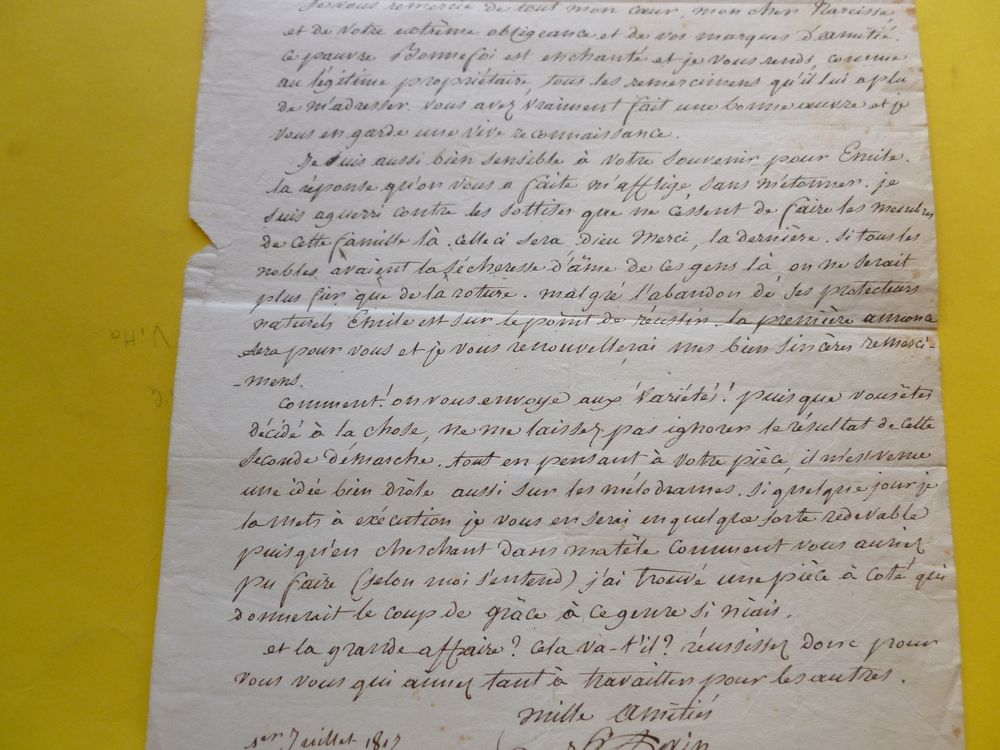 Je vous remercie de tout mon cœur, mon cher Narcisse,
et de votre extrême obligeance et de vos marques d'amitié.
ce pauvre Bonnefoi est enchanté et je vous rends, comme
au légitime propriétaire, tous les remercimens qu'il lui a plu
de m'adresser. vous avez vraiment fait une bonne œuvre et je
vous en garde une vive reconnaissance.
Je suis aussi bien sensible à votre souvenir pour Emile.
la réponse qu'on vous a faite m'afflige sans m'étonner. je
suis aguerri contre les sottises que ne cessent de faire les membres
de cette famille là. celle ci sera, Dieu merci, la dernière. si tous les
nobles avaient la sécheresse d'âme de ces gens là, on ne serait
plus fier que de la roture. malgré l'abandon de ses protecteurs
naturels Emile est sur le point de réussir. la première annonce
sera pour vous et je vous renouvellerai mes bien sincères remerci-
-mens.
Comment! on vous envoye aux Variétés! puisque vous êtes
décidé à la chose, ne me laissez pas ignorer le résultat de cette
seconde démarche. tout en pensant à votre pièce, il m'est venu
une idée bien drôle aussi sur les mélodrames. si quelque jour je
la mets à exécution je vous en serai en quelque sorte redevable
puisqu'en cherchant dans ma tête comment vous auriez
pu faire (selon moi s'entend) j'ai trouvé une pièce à coté qui
donnerait le coup de grâce à ce genre si niais.
et la grande affaire? Cela va-t'il? réussissez donc pour
vous vous qui aimez tant à travailler pour les autres.
mille amitiés
1er Juillet 1817